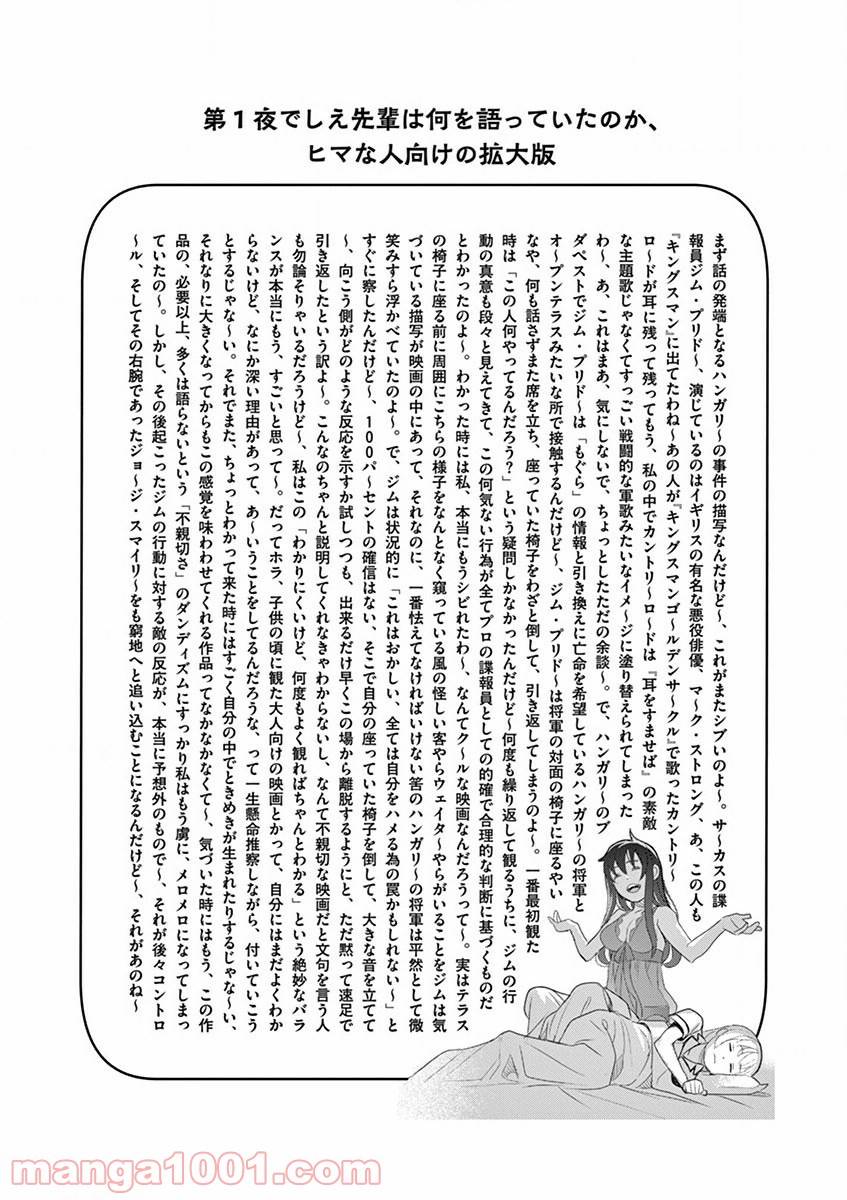 第1夜でしえ先輩は何を語っていたのか、
ヒマな人向けの拡大版
まず話の発端となるハンガリ〜の事件の描写なんだけど〜、これがまたシブいのよ〜。サ〜カスの諜
報員ジム・プリド〜、演じているのはイギリスの有名な悪役俳優、マ〜ク・ストロング、あ、この人も
『キングスマン』に出てたわね〜あの人が『キングスマンゴ〜ルデンサ〜クル』で歌ったカントリ〜
ロ〜ドが耳に残って残ってもう、私の中でカントリ〜ロ〜ドは『耳をすませば』の素敵
な主題歌じゃなくてすっごい戦闘的な軍歌みたいなイメ〜ジに塗り替えられてしまった
わ〜、あ、これはまあ、気にしないで、ちょっとしたただの余談〜。で、ハンガリ〜のブ
ダペストでジム・プリド〜は「もぐら」の情報と引き換えに亡命を希望しているハンガリ〜の将軍と
オ〜プンテラスみたいな所で接触するんだけど〜、ジム・プリド〜は将軍の対面の椅子に座るやい
なや、何も話さずまた席を立ち、座っていた椅子をわざと倒して、引き返してしまうのよ〜。一番最初観た
時は「この人何やってるんだろう?」という疑問しかなかったんだけど〜何度も繰り返して観るうちに、ジムの行
動の真意も段々と見えてきて、この何気ない行為が全てプロの諜報員としての的確で合理的な判断に基づくものだ
とわかったのよ〜。わかった時には私、本当にもうシビれたわ〜、なんてク〜ルな映画なんだろうって〜。実はテラス
の椅子に座る前に周囲にこちらの様子をなんとなく窺っている風の怪しい客やらウェイタ〜やらがいることをジムは気
づいている描写が映画の中にあって、それなのに、一番怯えてなければいけない筈のハンガリ〜の将軍は平然として微
笑みすら浮かべていたのよ〜。で、ジムは状況的に「これはおかしい、全ては自分をハメる為の罠かもしれない〜」と
すぐに察したんだけど〜、100パ〜セントの確信はない、そこで自分の座っていた椅子を倒して、大きな音を立てて
〜、向こう側がどのような反応を示すか試しつつも、出来るだけ早くこの場から離脱するようにと、ただ黙って速足で
引き返したという訳よ〜。こんなのちゃんと説明してくれなきゃわからないし、なんて不親切な映画だと文句を言う人
も勿論そりゃいるだろうけど〜、私はこの「わかりにくいけど、何度もよく観ればちゃんとわかる」という絶妙なバラ
ンスが本当にもう、すごいと思って〜。だってホラ、子供の頃に観た大人向けの映画とかって、自分にはまだよくわか
らないけど、なにか深い理由があって、あ〜いうことをしてるんだろうな、って一生懸命推察しながら、付いていこう
とするじゃな〜い。それでまた、ちょっとわかって来た時にはすごく自分の中でときめきが生まれたりするじゃな〜い、
それなりに大きくなってからもこの感覚を味わわせてくれる作品ってなかなかなくて〜、気づいた時にはもう、この作
品の、必要以上、多くは語らないという「不親切さ」のダンディズムにすっかり私はもう虜に、メロメロになってしまっ
ていたの〜。しかし、その後起こったジムの行動に対する敵の反応が、本当に予想外のもので〜、それが後々コントロ
〜ル、そしてその右腕であったジョ〜ジ・スマイリ〜をも窮地へと追い込むことになるんだけど〜、それがあのね〜
manga1001.com